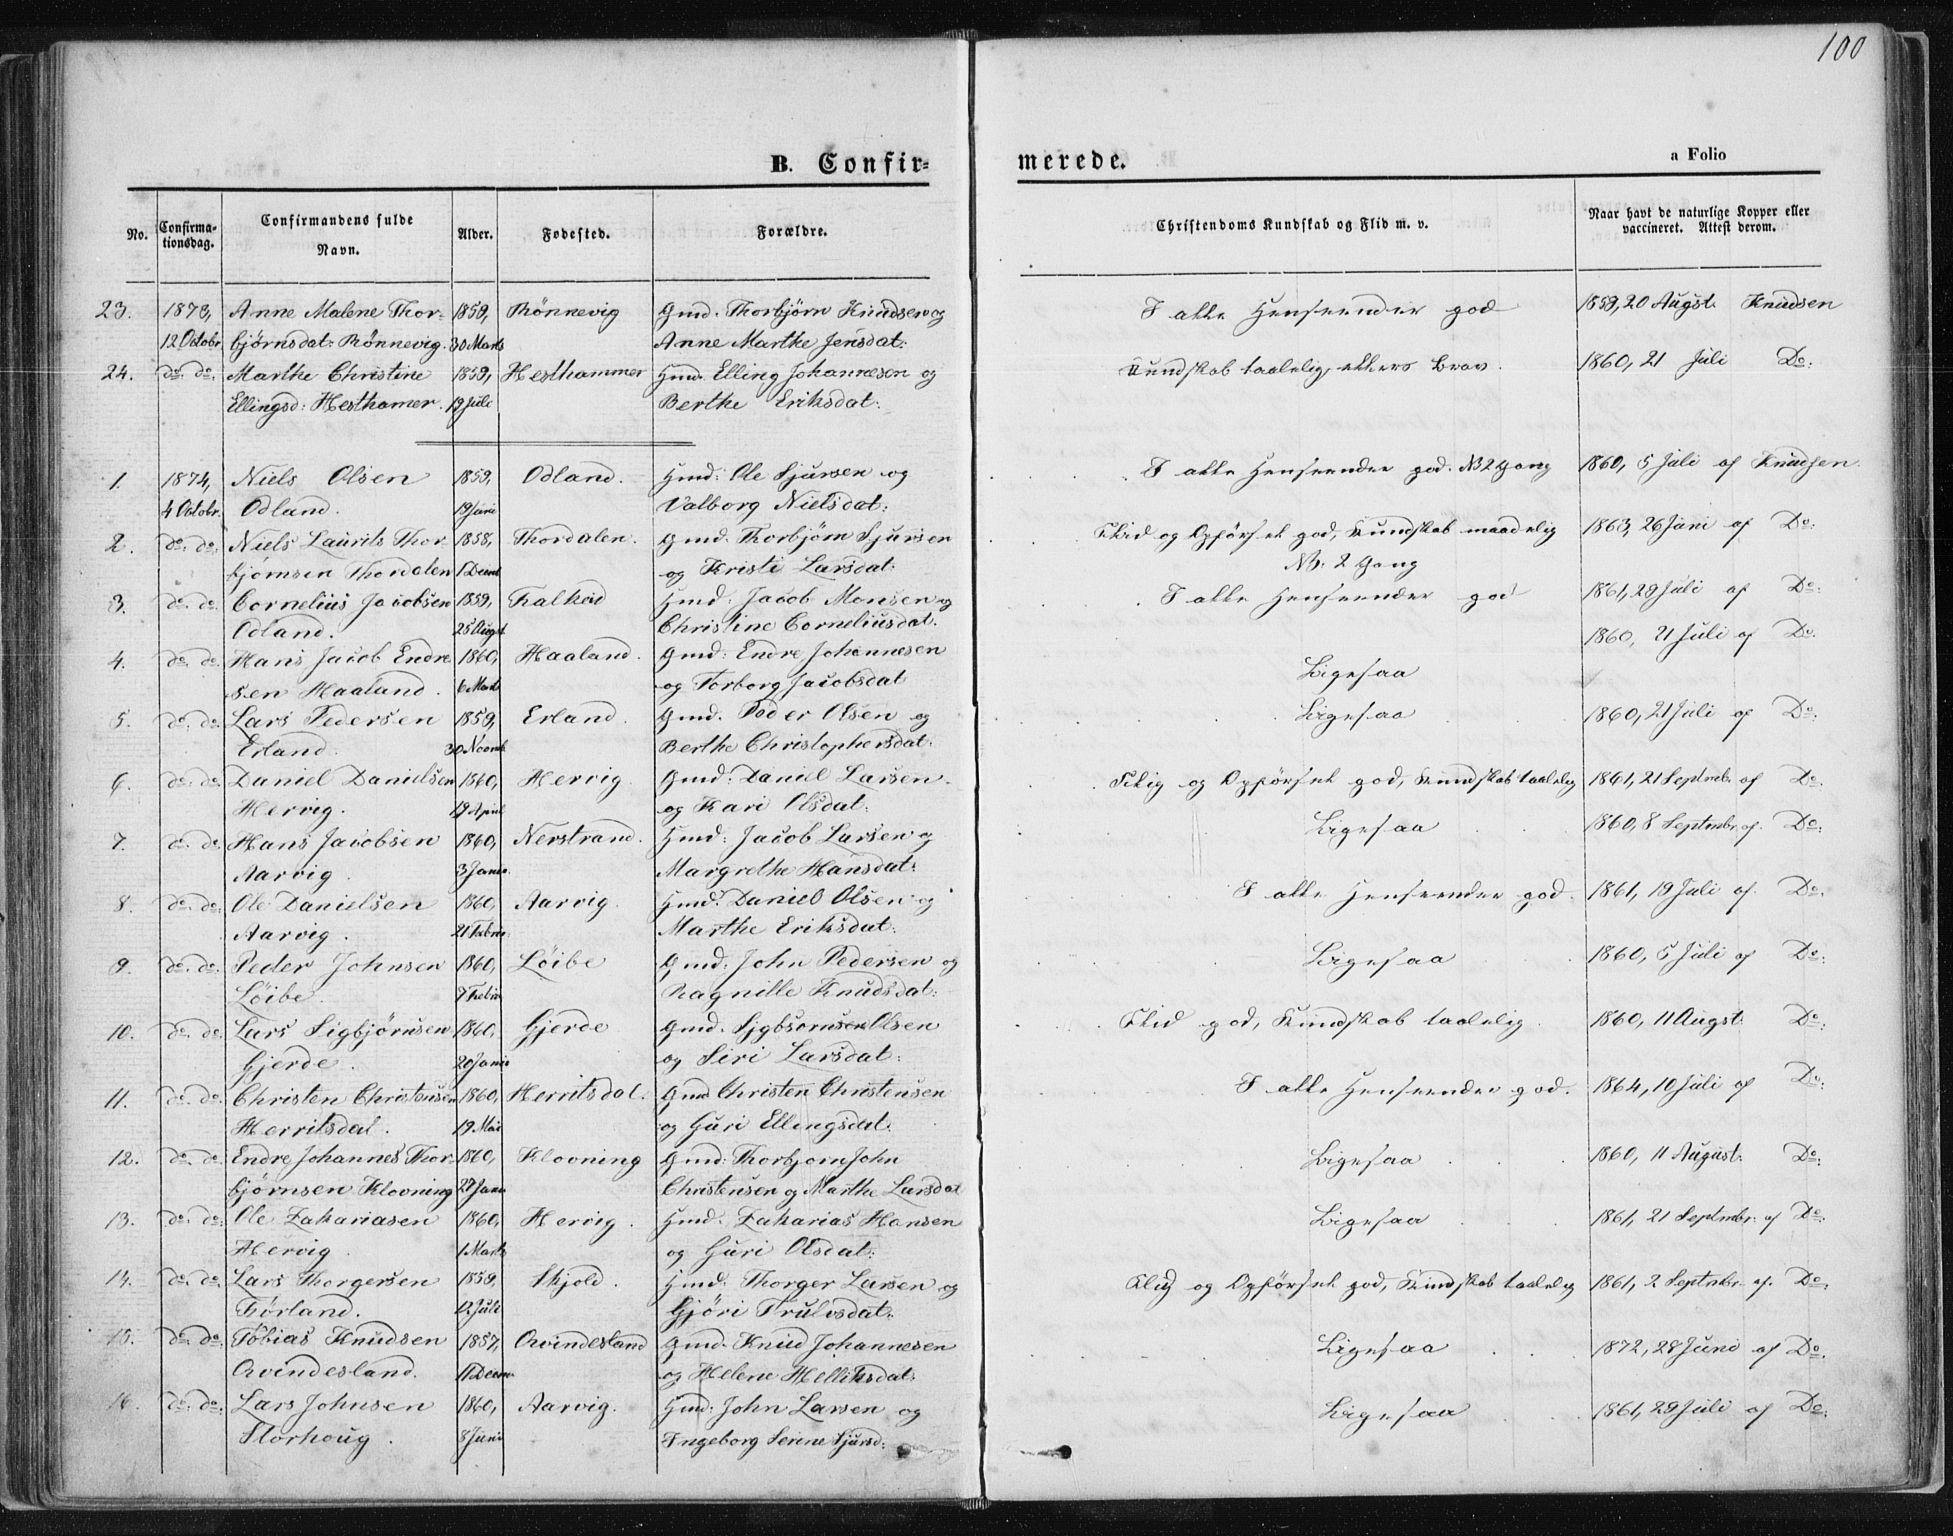 100
B. Confir=
merede.
a Folio
No.
Confirma-
tionsdag.
Confirmandens fulde
Navn.
Alder.
Fødested.
Forældre.
Christendoms Kundskab og Flid m. v.
Naar havt de naturlige Kopper eller
vaccineret. Attest derom.
23. 1873, Anne Malene Thor- 1859, Rönnevig Gmd. Thorbjörn Knudsen og I alle Henseender god 1859, 20 Augst. Knudsen
12 Octobr. bjørnsdat: Rönnevig. 30 Marts Anne Marthe Jensdat:
24. do. do. Marthe Christine 1859, Hesthammer Hmd. Elling Johannesen og Kundskab taalelig, ellers brav. 1860, 21 Juli Do:
Ellingsd: Hesthamer. 19 Juli Berthe Eriksdat:
1. 1874, Niels Olsen 1859, Odland. Hmd: Ole Sjursen og I alle Henseender god. NB 2 Gang 1860, 5 Juli af Knudsen.
4 Octobr. Odland. 19 Juni Valborg Nielsdat:
2. do. do. Niels Laurits Thor- 1858, Thordalen. Gmd. Thorbjörn Sjursen Flid og Opførsel god, Kundskab maadelig 1863, 26 Juni af Do:
bjørnsen Thordalen 1 Decmb og Kristi Larsdat: NB: 2 Gang
3. do. do. Cornelius Jacobsen 1859, Falkeid Hmd. Jacob Monsen og I alle Henseender god 1861, 29 Juli af Do:
Odland. 25 Augst Christine Corneliusdat.
4. do. do. Hans Jacob Endre- 1860, Haaland. Gmd: Endre Johannesen Ligesaa 1860, 21 Juli af Do.
sen Haaland. 6 Marts og Torborg Jacobsdat
5. do. do. Lars Pedersen 1859, Erland. Gmd. Peder Olsen og Ligesaa 1860, 21 Juli af Do:
Erland. 30 Novmb Berthe Christophersdat:
6. do. do. Daniel Danielsen 1860, Hervig. Gmd: Daniel Larsen Flid og Opførsel god, Kundskab taalelig 1861, 21 Septmbr. af Do:
Hervig. 19 April og Kari Olsdat:
7. do. do. Hans Jacobsen 1860, Nerstrand. Hmd: Jacob Larsen og Ligesaa 1860, 8 Septmbr. af. Do:
Aarvig. 3 Janr. Margrethe Hansdat:
8. do. do. Ole Danielsen 1860, Aarvig. Hmd: Daniel Olsen og I alle Henseender god. 1861, 19 Juli af. Do:
Aarvig. 21 Febr. Marthe Eriksdat:
9. do. do. Peder Johnsen 1860, Löibe Gmd: John Pedersen og Ligesaa 1860, 5 Juli af Do:
Löibe. 7 Febr. Ragnille Knudsdat:
10. do. do. Lars Sigbjörnsen 1860, Gjerde Gmd. Olsen Flid god, Kundskab taalelig 1860, 11 Augst. Do:
Gjerde. 20 og Siri Larsdat:
11. do. do. Christen Christensen 1860, Herritsdal. Gmd Christen Christensen I alle Henseender god. 1864, 10 Juli af Do:
Herritsdal. 19 Mai og Guri Ellingsdat.
12. do. do. Endre Johannes Thor- 1860, Klovning Gmd: Thorbjörn John Ligesaa 1860, 11 August: Do:
bjørnsen Klovning 27 Janr Christensen og Marthe Larsdat
13. do. do. Ole Zakariasen 1860, Hervig. Hmd. Zakarias Hansen Ligesaa 1861, 21 Septmbr: af Do:
Hervig. 1 Marts og Guri Olsdat:
14. do. do. Lars Thorgersen 1859, Skjold. Hmd. Thorger Larsen og Flid og Opførsel god, Kundskab taalelig 1861, 2 Septmbr. af. Do:
Förland. 12 Juli Gjöri Trulvsdat:
15. do. do. Tobias Knudsen 1857, Qvindesland Gmd. Knud Johannesen Ligesaa 1872, 28 Juni af Do.
Qvindesland. 11 Decmb og Helene
16. do. do. Lars Johnsen 1860, Aarvig. Hmd: John Larsen og Ligesaa 1861, 29 Juli af Do:
Storhoug. 8 Juni Ingeborg Serine Sjursd: